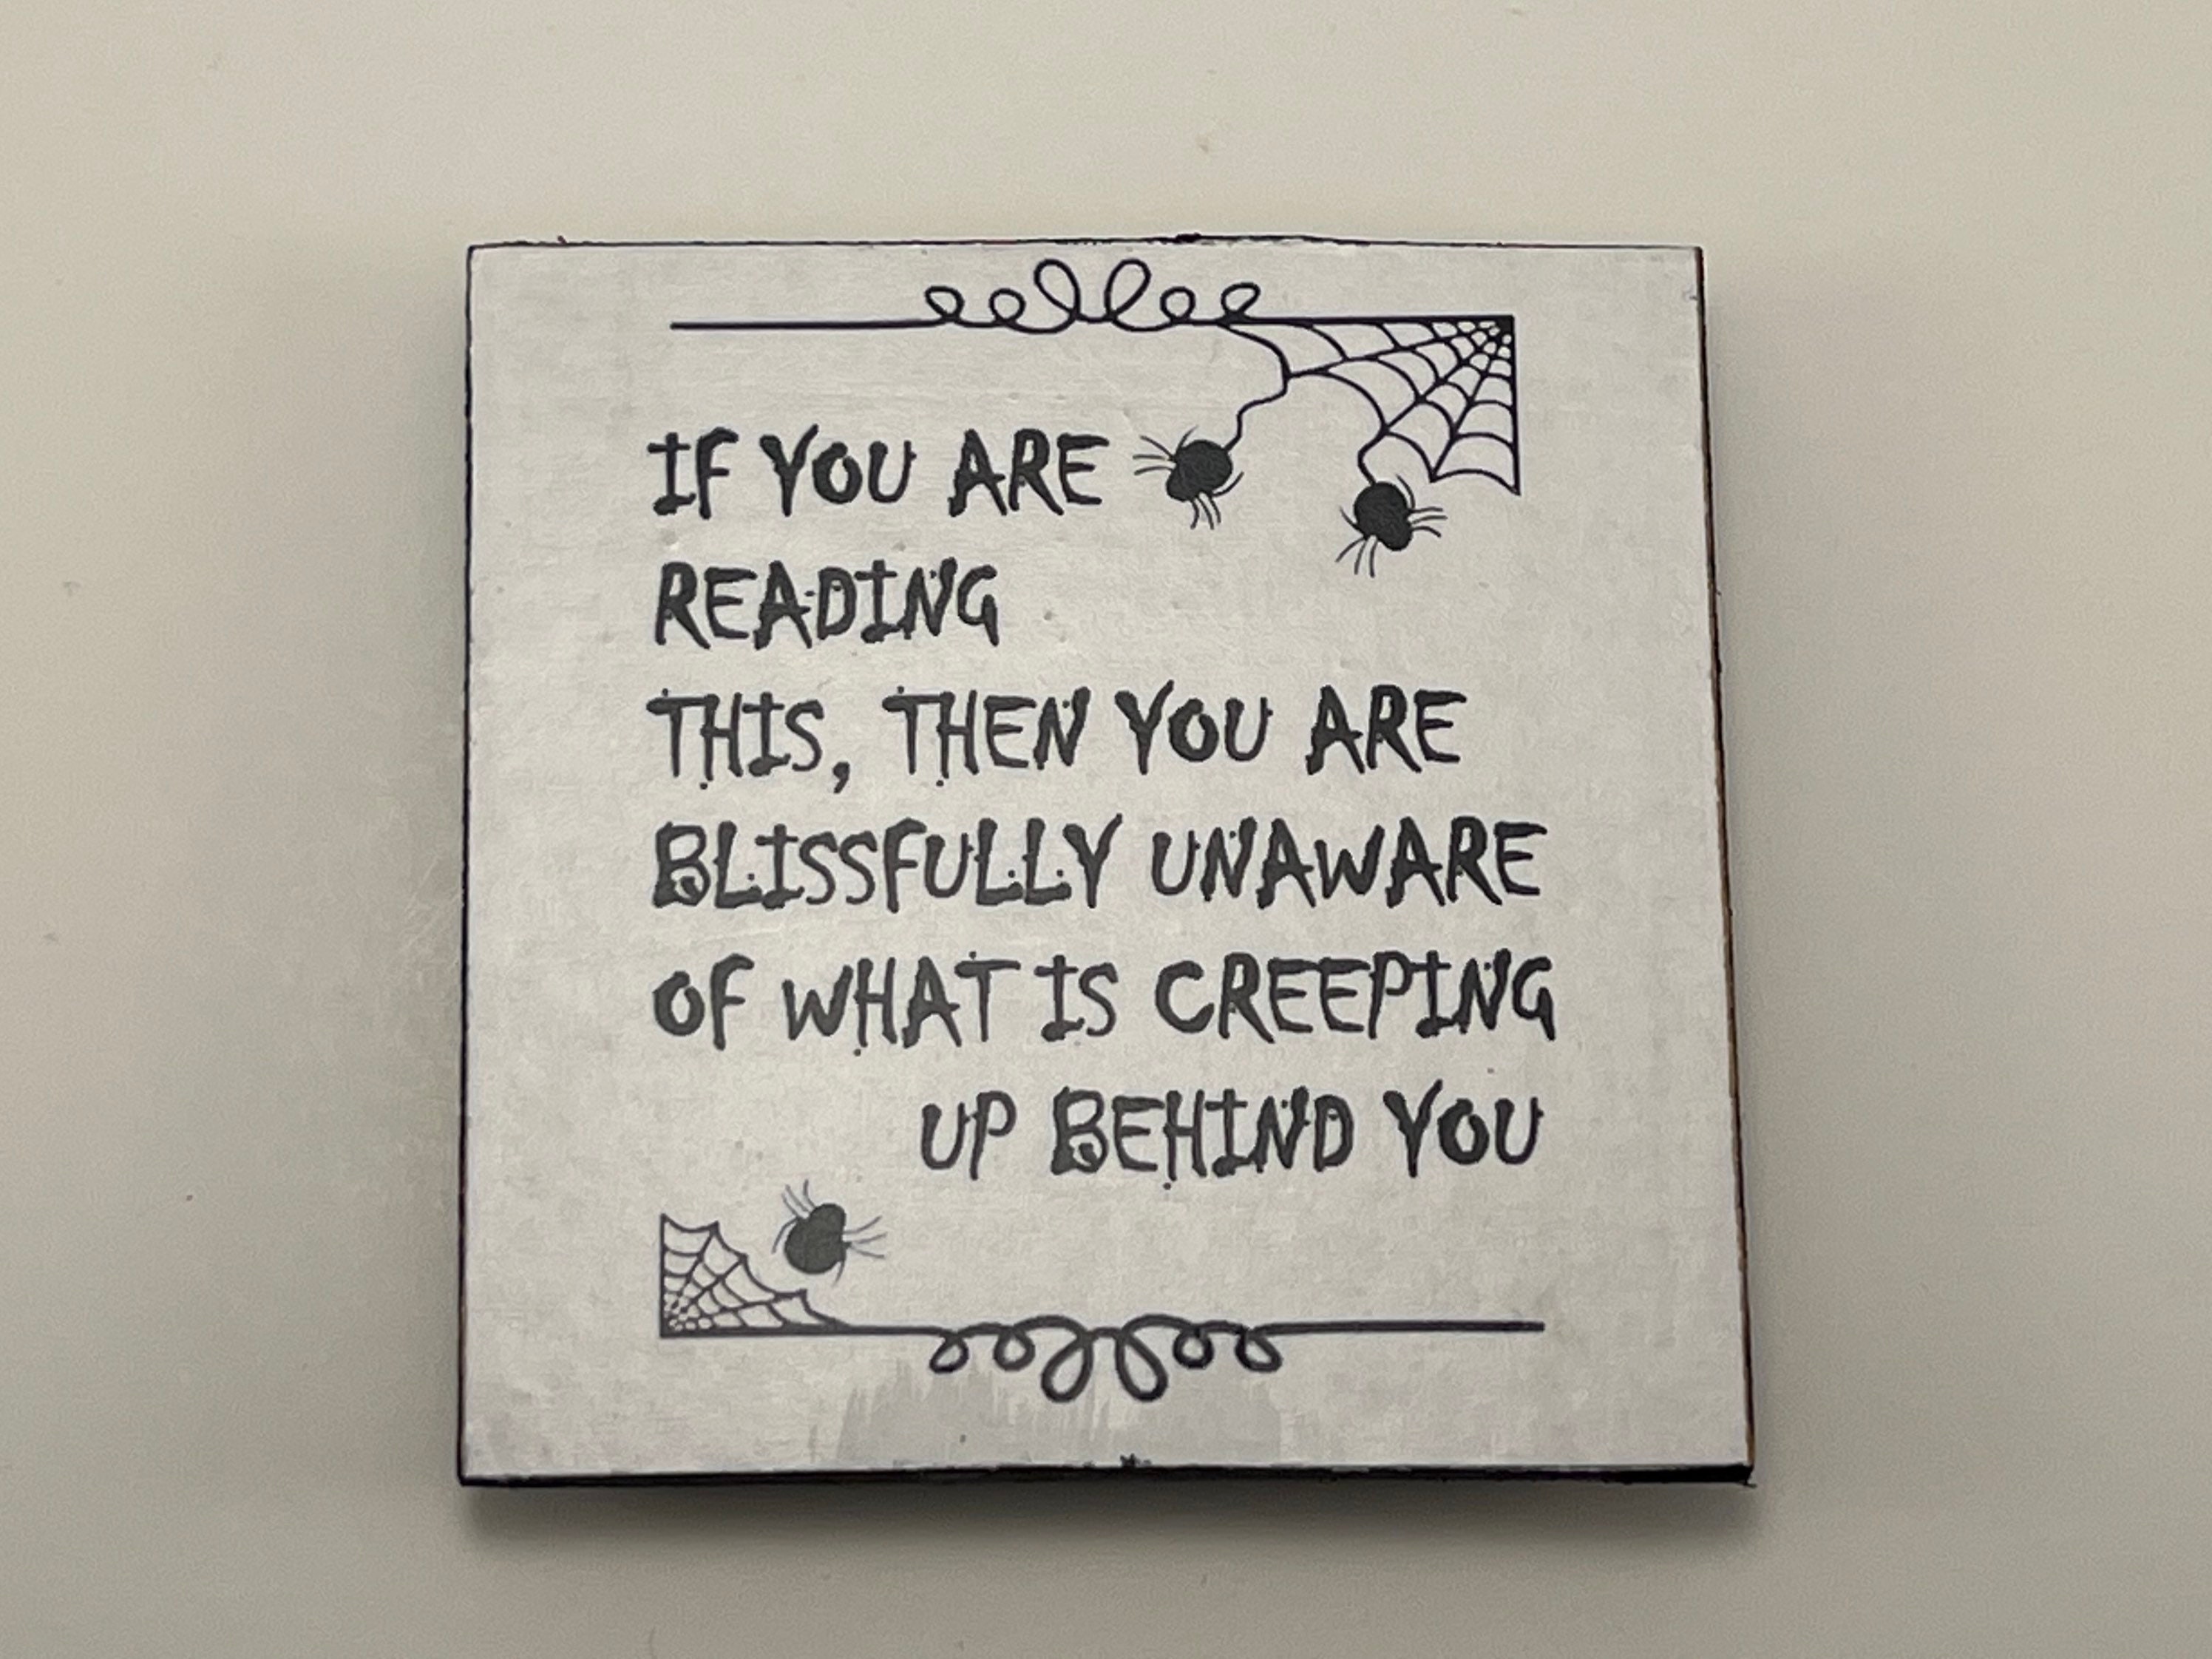 IF YOU ARE
READING
THIS, THEN YOU ARE
BLISSFULLY UNAWARE
OF WHAT IS CREEPING
UP BEHIND YOU